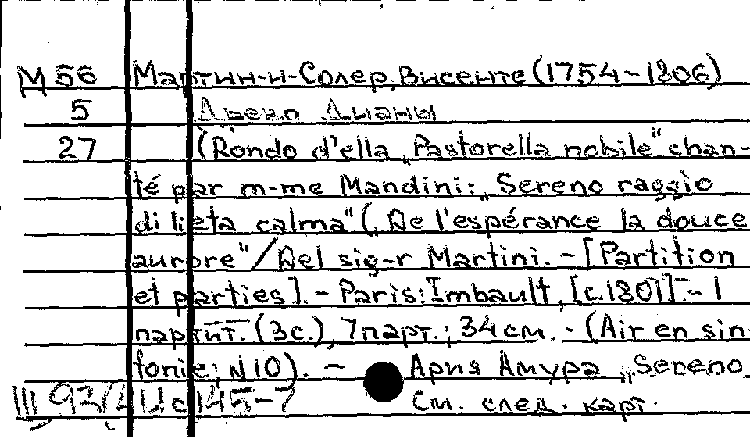 М 56 Мартин-и-Солер, Висенте (1754-1806)
5 Древо Дианы
27 (Rondo d'ella „Pastorella nobile" chan-
té par m-me Mandini: „Sereno raggio
di lieta calma" („De l'espérance la douce
aurore"/Del sig-r Martini. - [Partition
et parties]. - Paris: Imbault, [c.1801]. - 1
партит. (3с.), 7 парт.; 34 см. - (Air en sin
fonie; N 10). - Ария Амура „Sereno
III 93/ с 145-7 См. след. карт.